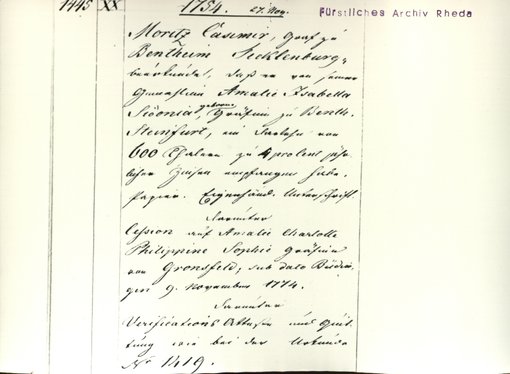 1445 XX 1754. 27. Nov. Fürstliches Archiv Rheda
Moritz Casimir, Graf zu
Bentheim Tecklenburg,
beurkundet, daß er von seiner
Gemahlin Amalie Isabella
Sidonia, geborene Gräfin zu Benth.
Steinfurt, ein Darlehn von
600 Thalern zu 4 procent jähr-
licher Zinsen empfangen habe.
Papier. Eigenhänd. Unterschrift.
Darunter
Cession auf Amalie Charlotte
Philippine Sophie Gräfin
von Gronsfeld, sub dato Büdin-
gen 9. November 1774.
Darunter
Verifications Attesten und Quit-
tung wie bei der Urkunde
No 1419.